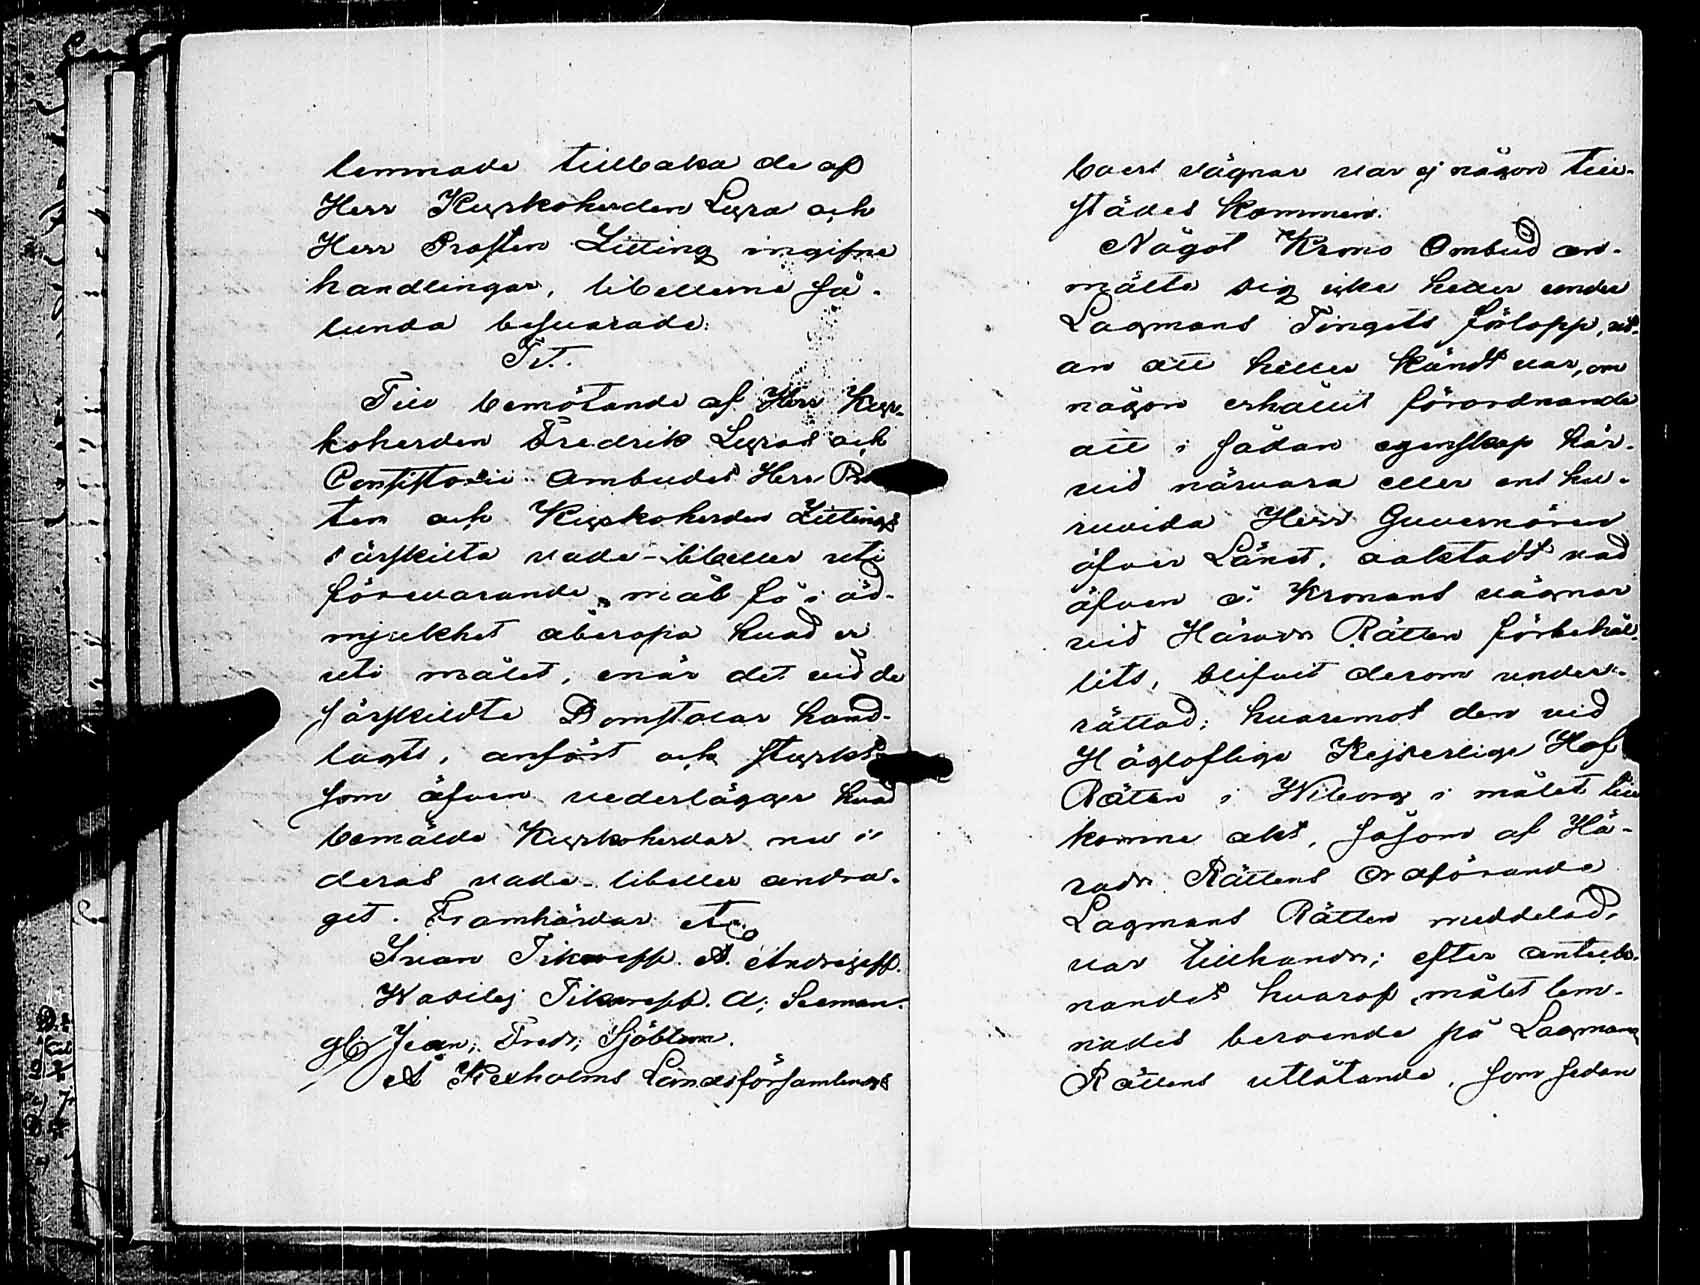 lemnade tillbaka de af
Herr Kyrkoherden Lyra och
Herr Prosten Zitting ingifne
handlingar, libellerne så-
lunda besvarade:
T.T.
Till bemötande af Herr Kyr-
koherden Fredrik Lyras och
Consistorii Ombudes Herr Pros
ten och Kyrkoherden Zittings
särskilta vade-libeller uti
förevarande mål få i öd-
mjukhet åberopa hvad vi
uti målet, enär det vid de
särskildte Domstolar hand-
lagts, anfört och styrkt
som äfven vederlägger hvad
bemälde Kyrkoherdar nu i
deras vade-libeller andra-
get. Framhärdar etc
Ivan Tikanoff. A. Andrejeff.
Wasilej Tikanoff. A. Seeman.
gb Jean. Fredr. Sjöblom.
Å Kexholms Landsförsamlings
boers vägnar var ej någon till-
städes kommen.
Något Krono Ombud an-
mälte sig icke heller under
Lagmans Tingets förlopp, ut-
an att heller kändt var, om
någon erhållit förordnande
att i sådan egenskap här-
vid närvara eller ens hu-
ruvida Herr Guvernören
öfver Länet, oaktadt vad
äfven å Kronans vägnar
vid Härads Rätten förbehål-
lits, blifvit derom under-
rättad; hvaremot den vid
Höglofliga Kejserliga Hof
Rätten i Wiborg i målet till
komne akt, såsom af Hä-
rads Rättens Ordförande
Lagmans Rätten meddelad,
var tillhanda; efter anteck-
nandet hvaraf målet lem-
nades beroende på Lagmans
Rättens utlåtande, som sedan